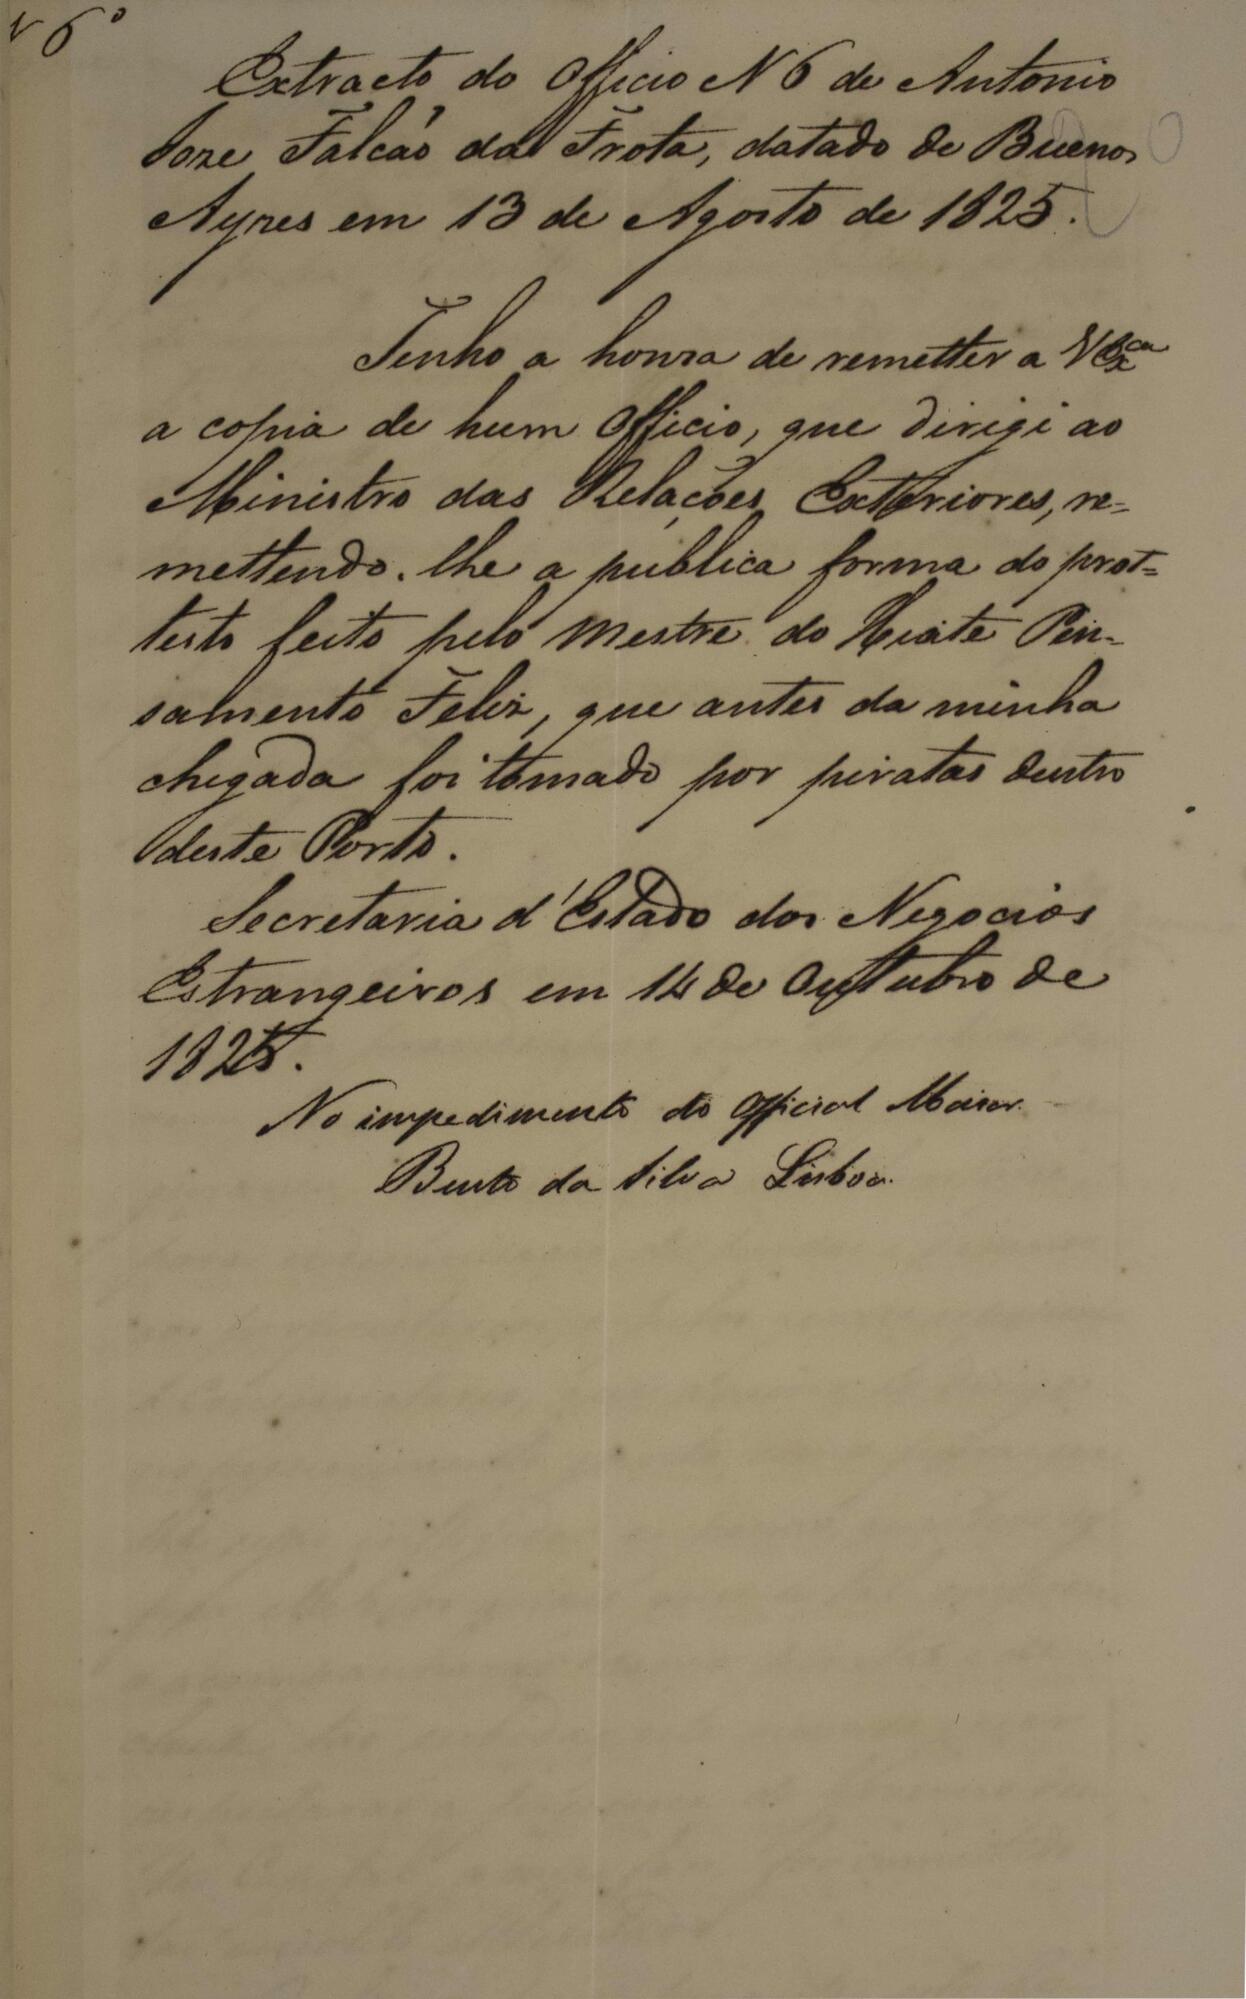 N 6º
Extracto do Officio N 6 de Antonio
Joze Falcão da Frota, datado de Buenos
Ayres em 13 de Agosto de 1825.
Tenho a honra de remetter a VExca
a copia de hum Officio, que dirigi ao
Ministro das Relações Exteriores, re=
mettendo-lhe a publica forma do prot=
testo feito pelo Mestre do Hiate Pen=
samento Feliz, que antes da minha
chegada foi tomado por piratas dentro
deste Porto.
Secretaria d'Estado dos Negocios
Estrangeiros em 14 de Outubro de
1825.
No impedimento do Official Maior.
Bento da Silva Lisboa.